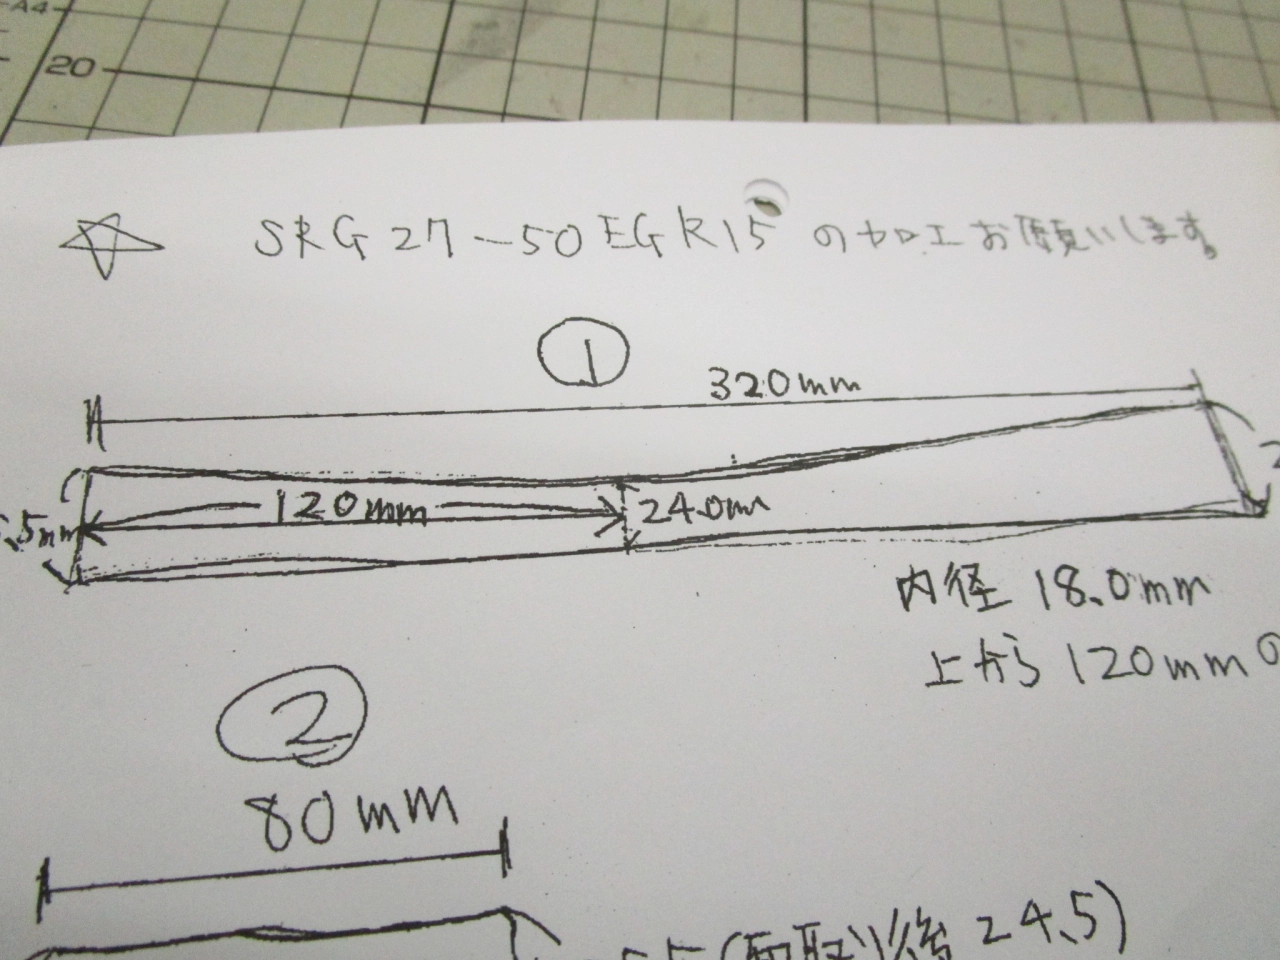 A4
20
☆ SRG27-50EGR15の加工お願いします。
①
320mm
120mm
24.0m
.5mm
内径 18.0mm
上から120mmの
②
80mm
(面取り後24.5)